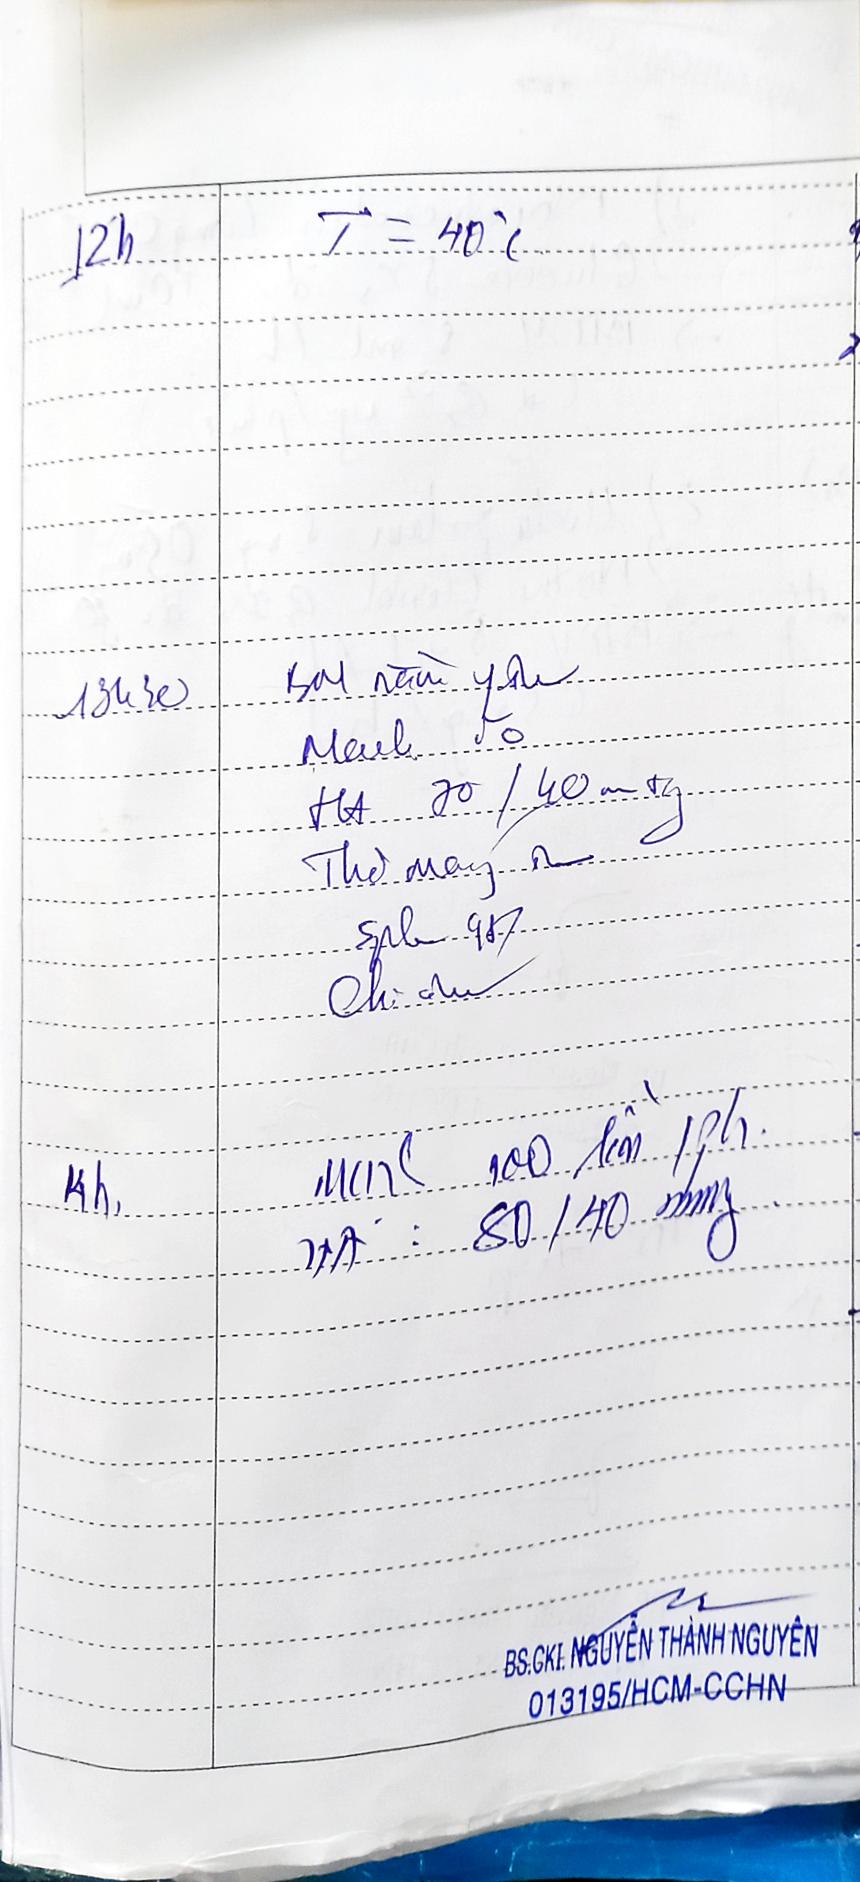 12h T = 40°C
13h30 BN nằm yên
Mạch 50
HA 70/40 mmHg
Thở máy
SpO2 98%
Chi ấm
14h. Mạch 100 lần/ph.
HA : 80/40 mmHg.
BS.CKI. NGUYỄN THÀNH NGUYÊN
013195/HCM-CCHN